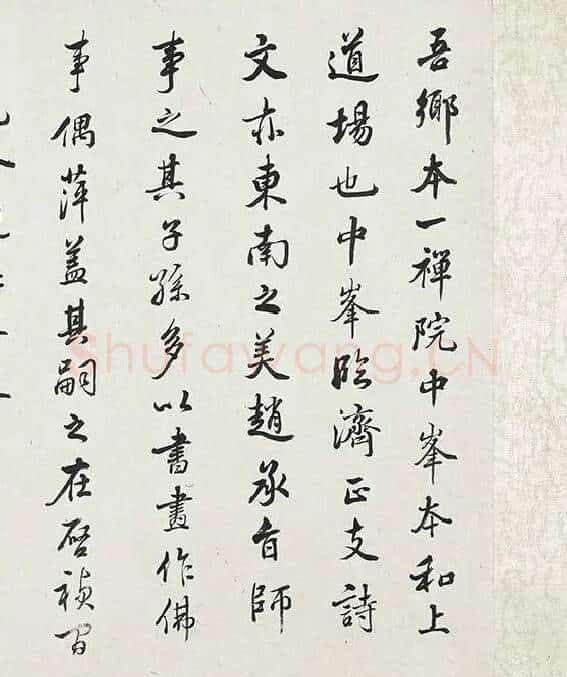 吾鄉本一禪院中峯本和上
道場也中峯臨濟正支詩
文亦東南之美趙承旨師
事之其子孫多以書畫作佛
事偶萍蓋其嗣之在啓禎間
Shufawang.CN